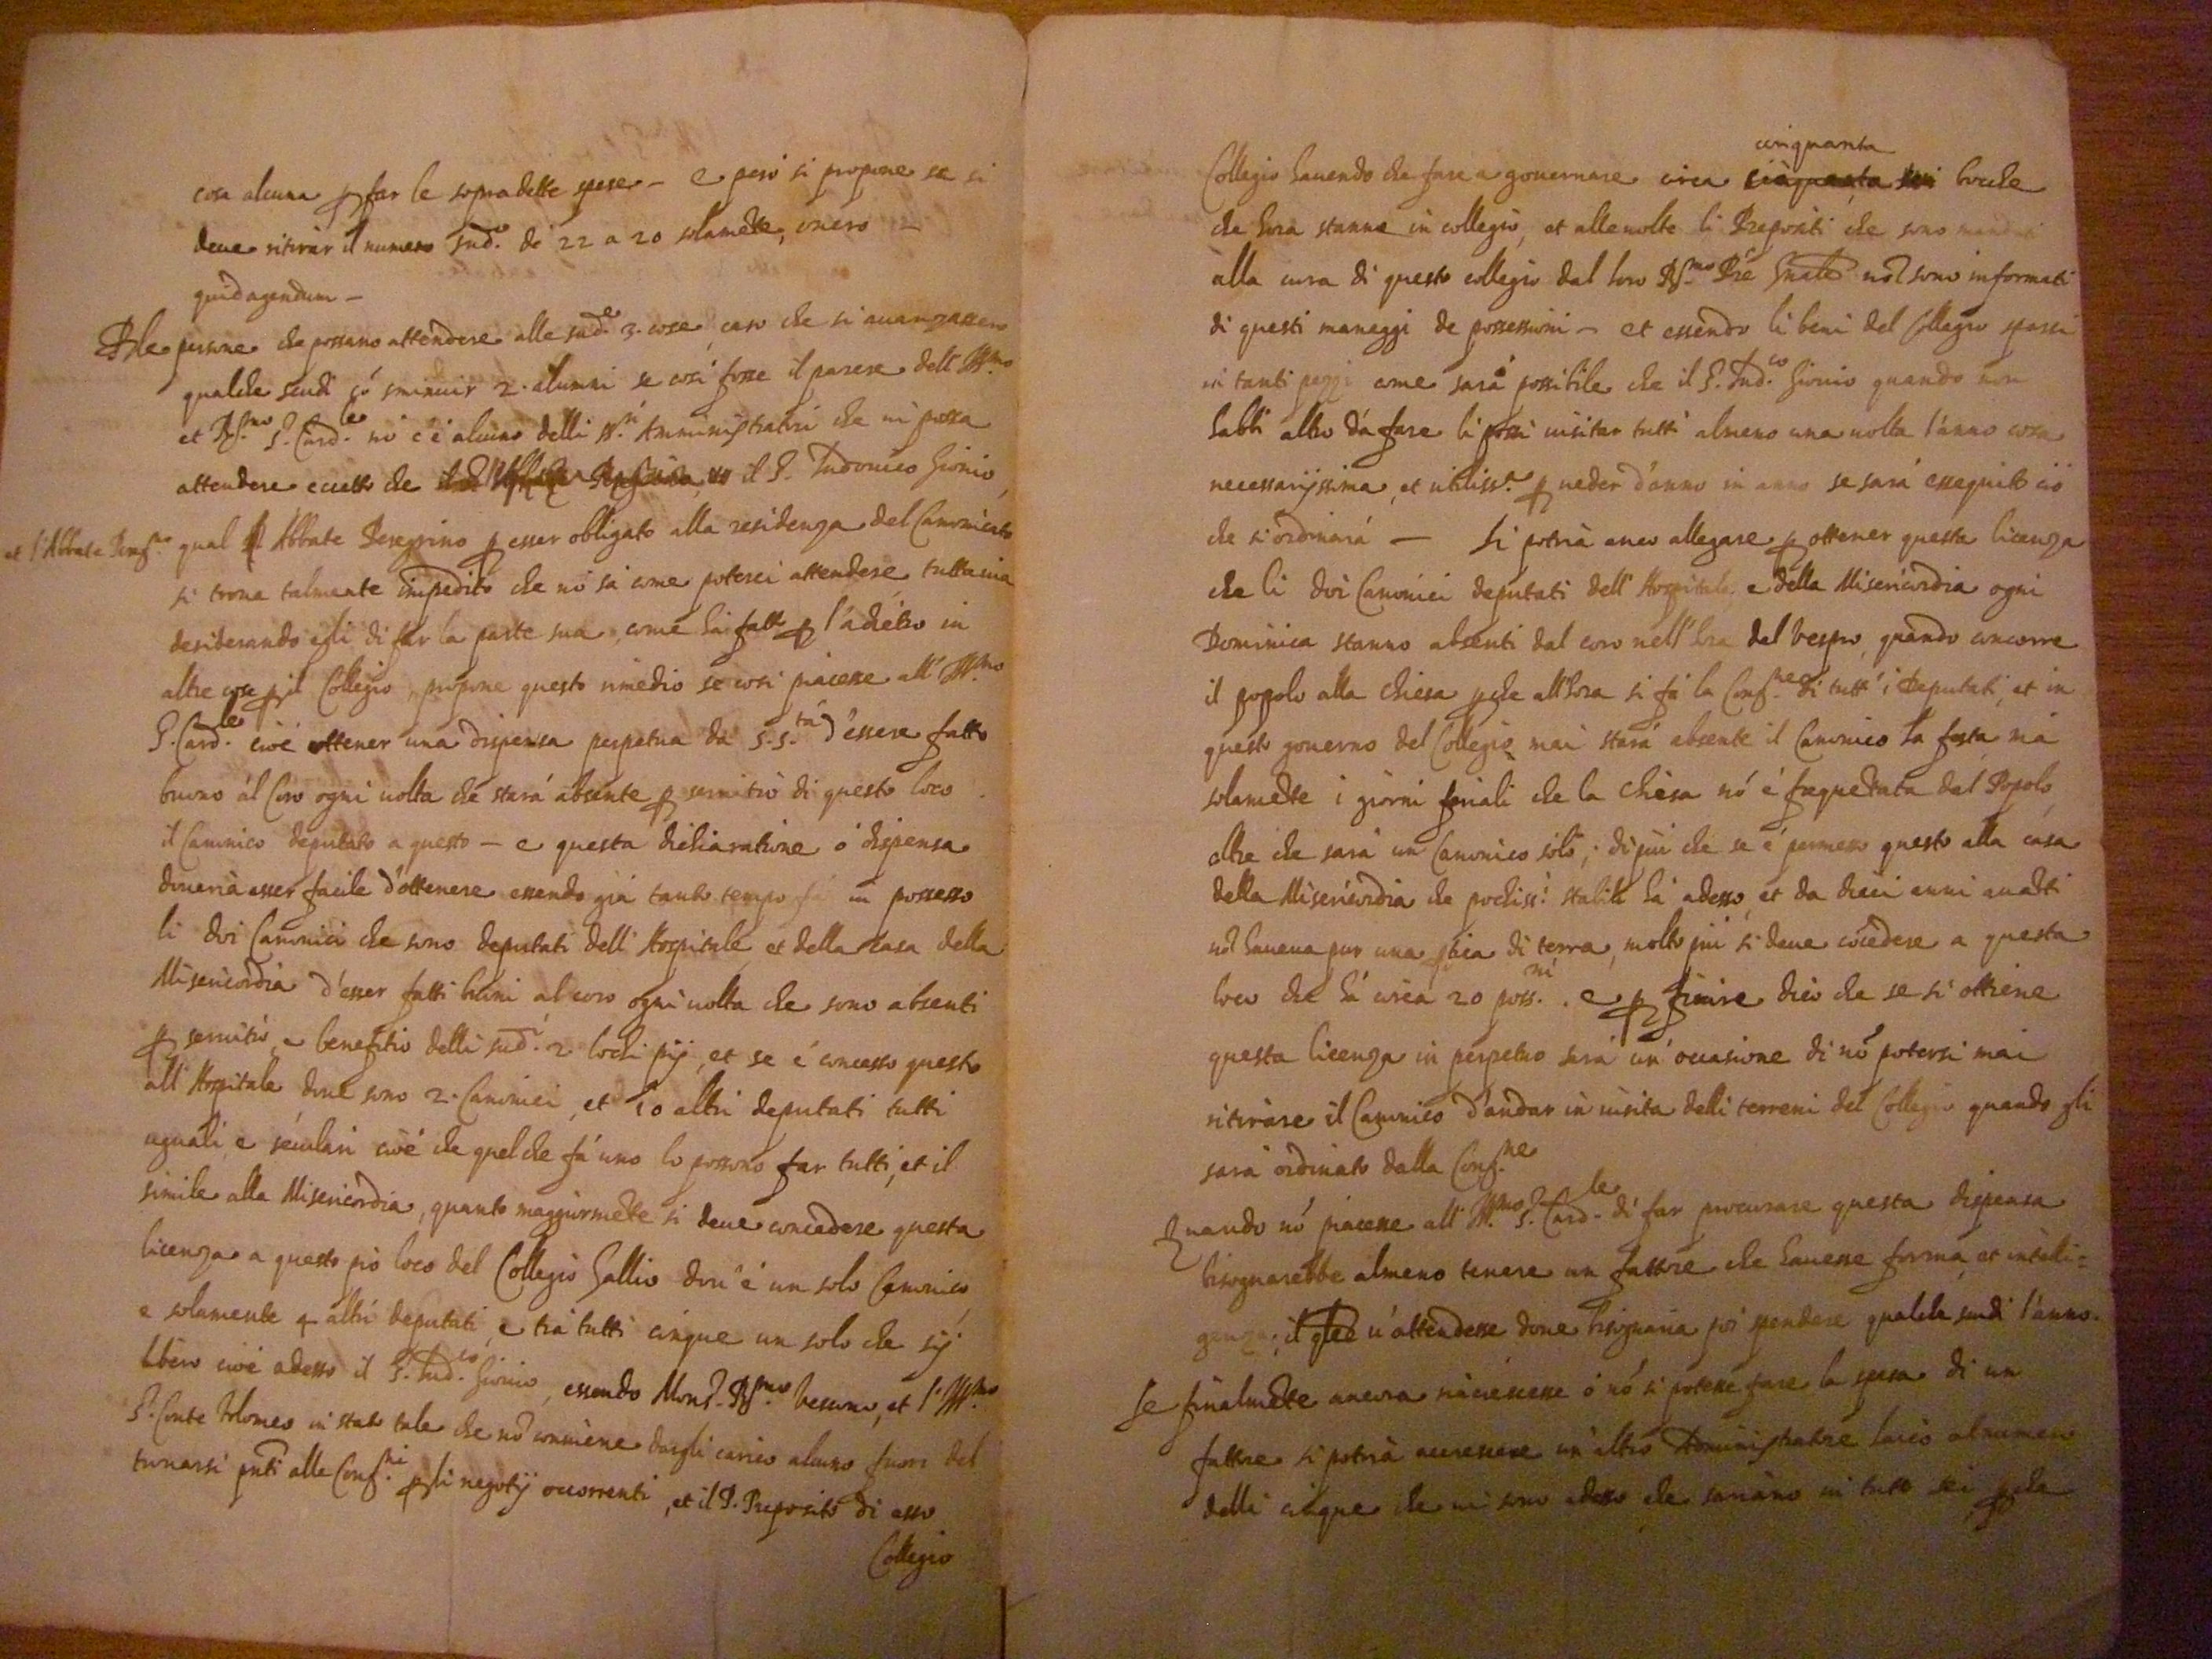 cosa alcuna p far le sopradette spese – e però si propone se si
deue ritirar il numero sud.o de 22 a 20 solamēte, ouero
quid agendum –
P le persone che possano attendere alle sud.e 3. cose, caso che si auanzassero
qualche scudi cō sminuir 2. alumni se così fosse il parere dell' Ill.mo
et R.mo S. Card.le nō c'è alcuno delli ss.ri Amministratori che vi possa
attendere eccetto che il S. Ludouico Giouio,
et l'Abbate
qual Abbate Peregrino p esser obligato alla residenza del Canonicato
si troua talmente impedito che nō sà come poterci attendere, tuttauia
desiderando egli di far la parte sua come hà fatto p l'adietro in
altre cose p il Collegio, propone questo rimedio se così piacesse all' Ill.mo
S. Card.le cioè ottener una dispensa perpetua da S. S.tà d'essere fatto
buono al Coro ogni uolta che starà absente p seruitio di questo loco
il Canonico deputato a questo – e questa dichiaratione ò dispensa
doueria esser facile d'ottenere essendo già tanto tempo fà in possesso
li doi Canonici che sono deputati dell' Hospitale, et della casa della
Misericordia d'esser fatti buni al coro ogni uolta che sono absenti
p seruitio, e benefitio delli sud.i 2 lochi pij, et se è concesso questo
all' Hospitale doue sono 2. Canonici, et 10 altri deputati tutti
uguali, e seculari cioè che quel che fà uno lo possono far tutti, et il
simile alla Misericordia, quanto maggiormēte si deue concedere questa
licenza a questo pio loco del Collegio Gallio dou'è un solo Canonico,
e solamente 4 altri deputati, e trà tutti cinque un solo che sij
libero cioè adesso il S. Lud.co Giouio, essendo Mons.r R.mo Vescouo, et l'Ill.mo
S. Conte Tolomeo in stato tale che nō conuiene dargli carico alcuno fuori del
trouarsi pnti alle Cong.ni p li negotij occorrenti, et il P. Preposito di esso
Collegio
cinquanta
Collegio hauendo che fare a gouernare circa bocche
che hora stanno in collegio, et alle uolte li Prepositi che sono mandati
alla cura di questo collegio dal loro R.mo Pre Gnale nō sono informati
di questi maneggi de possessioni – et essendo li beni del Collegio sparsi
in tanti pezzi come sarà possibile che il S. Lud.co Giouio quando non
habbi altro da fare li possi uisitar tutti almeno una uolta l'anno cosa
necessarijssima, et utiliss.a p ueder d'anno in anno se sarà essequito ciò
che si ordinarà – Si potrià anco allegare p ottener questa licenza
che li doi Canonici deputati dell' Hospitale, e della Misericordia ogni
Dominica stanno absenti dal coro nell' hora del Vespro, quando concorre
il popolo alla chiesa pche all'hora si fà la Cong.ne di tutt' i Deputati, et in
questo gouerno del Collegio mai starà absente il Canonico la festa mà
solamēte i giorni feriali che la chiesa nō è frequētata dal Popolo,
oltre che sarà un Canonico solo; di più che se è permesso questo alla casa
della Misericordia che pochiss.i stabili hà adesso, et da dieci anni auanti
nō haueua pur una pticà di terra, molto più si deue cōcedere a questa
loco che hà circa 20 poss.ni . e p finire dico che se si ottiene
questa licenza in perpetuo sarà un' occasione di nō potersi mai
ritirare il Canonico d'andar in uisita delli terreni del Collegio quando gli
sarà ordinato dalla Cong.ne
Quando nō piacesse all' Ill.mo S. Card.le di far procurare questa dispensa
bisognarebbe almeno tenere un fattore che hauesse forma, et intelli=
genza, il qle u'attendesse doue bisognaria poi spendere qualche scudi l'anno.
Se finalmēte ancora rincrescesse ò nō si potesse fare la spesa di un
fattore si potrià accrescere un' altro Amministratore laico al numero
delli cinque che ui sono adesso che sariano in tutto sei, pche